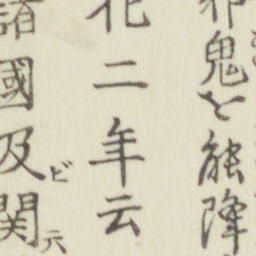 邪鬼を能降
化二年云
諸國及ビ関